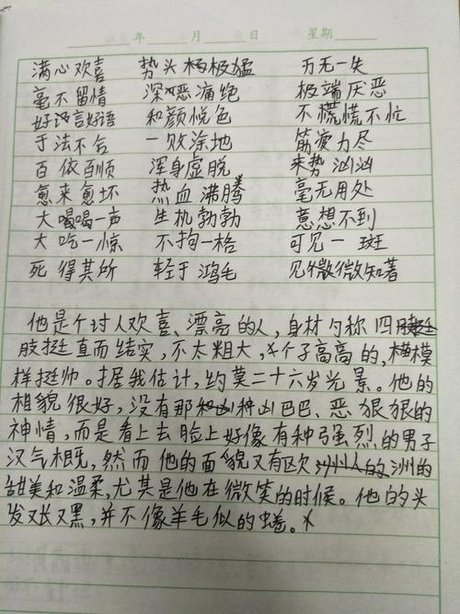 年 月 日 星期
满心欢喜 势头极猛 万无一失
毫不留情 深恶痛绝 极端厌恶
好言好语 和颜悦色 不慌不忙
于法不合 一败涂地 筋疲力尽
百依百顺 浑身虚脱 来势汹汹
愈来愈坏 热血沸腾 毫无用处
大喝一声 生机勃勃 意想不到
大吃一惊 不拘一格 可见一斑
死得其所 轻于鸿毛 见微知著
他是个讨人欢喜、漂亮的人,身材匀称四
肢挺直而结实,不太粗大,个子高高的,模
样挺帅。据我估计,约莫二十六岁光景。他的
相貌很好,没有那种凶巴巴、恶狠狠的
神情,而是看上去脸上好像有种强烈的男子
汉气概,然而他的面貌又有欧洲的
甜美和温柔,尤其是他在微笑的时候。他的头
发又长又黑,并不像羊毛似的蜷。